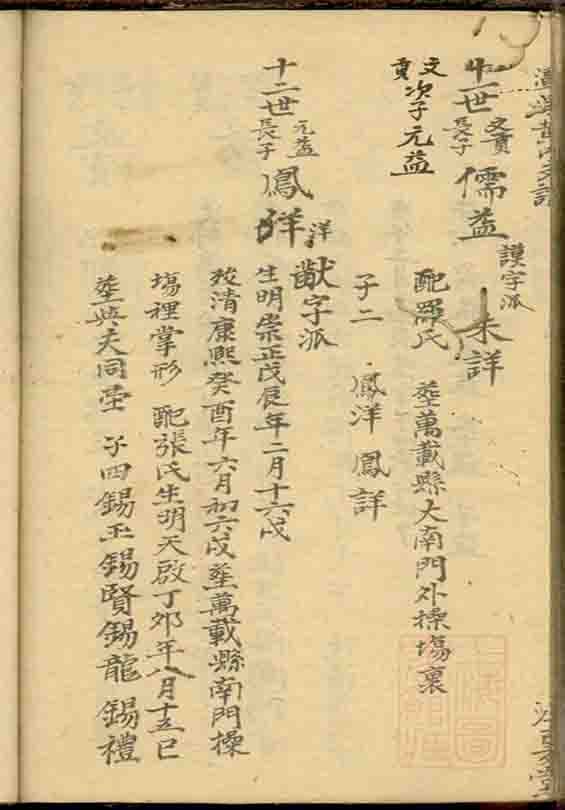 十一世 文貢長子 儒益 謨字派 未詳
文貢 次子 元益 配羅氏 塟萬載縣大南門外操塲裏
子二 鳳洋 鳳詳
十二世 元益長子 鳳洋 洋 猷字派
生明崇正戊辰年二月十六戌
歿清康熙癸酉年六月初六戌塟萬載縣南門操
塲裡掌形 配張氏生明天啟丁卯年八月十五巳
塟與夫同塋 子四錫玉錫賢錫龍 錫禮